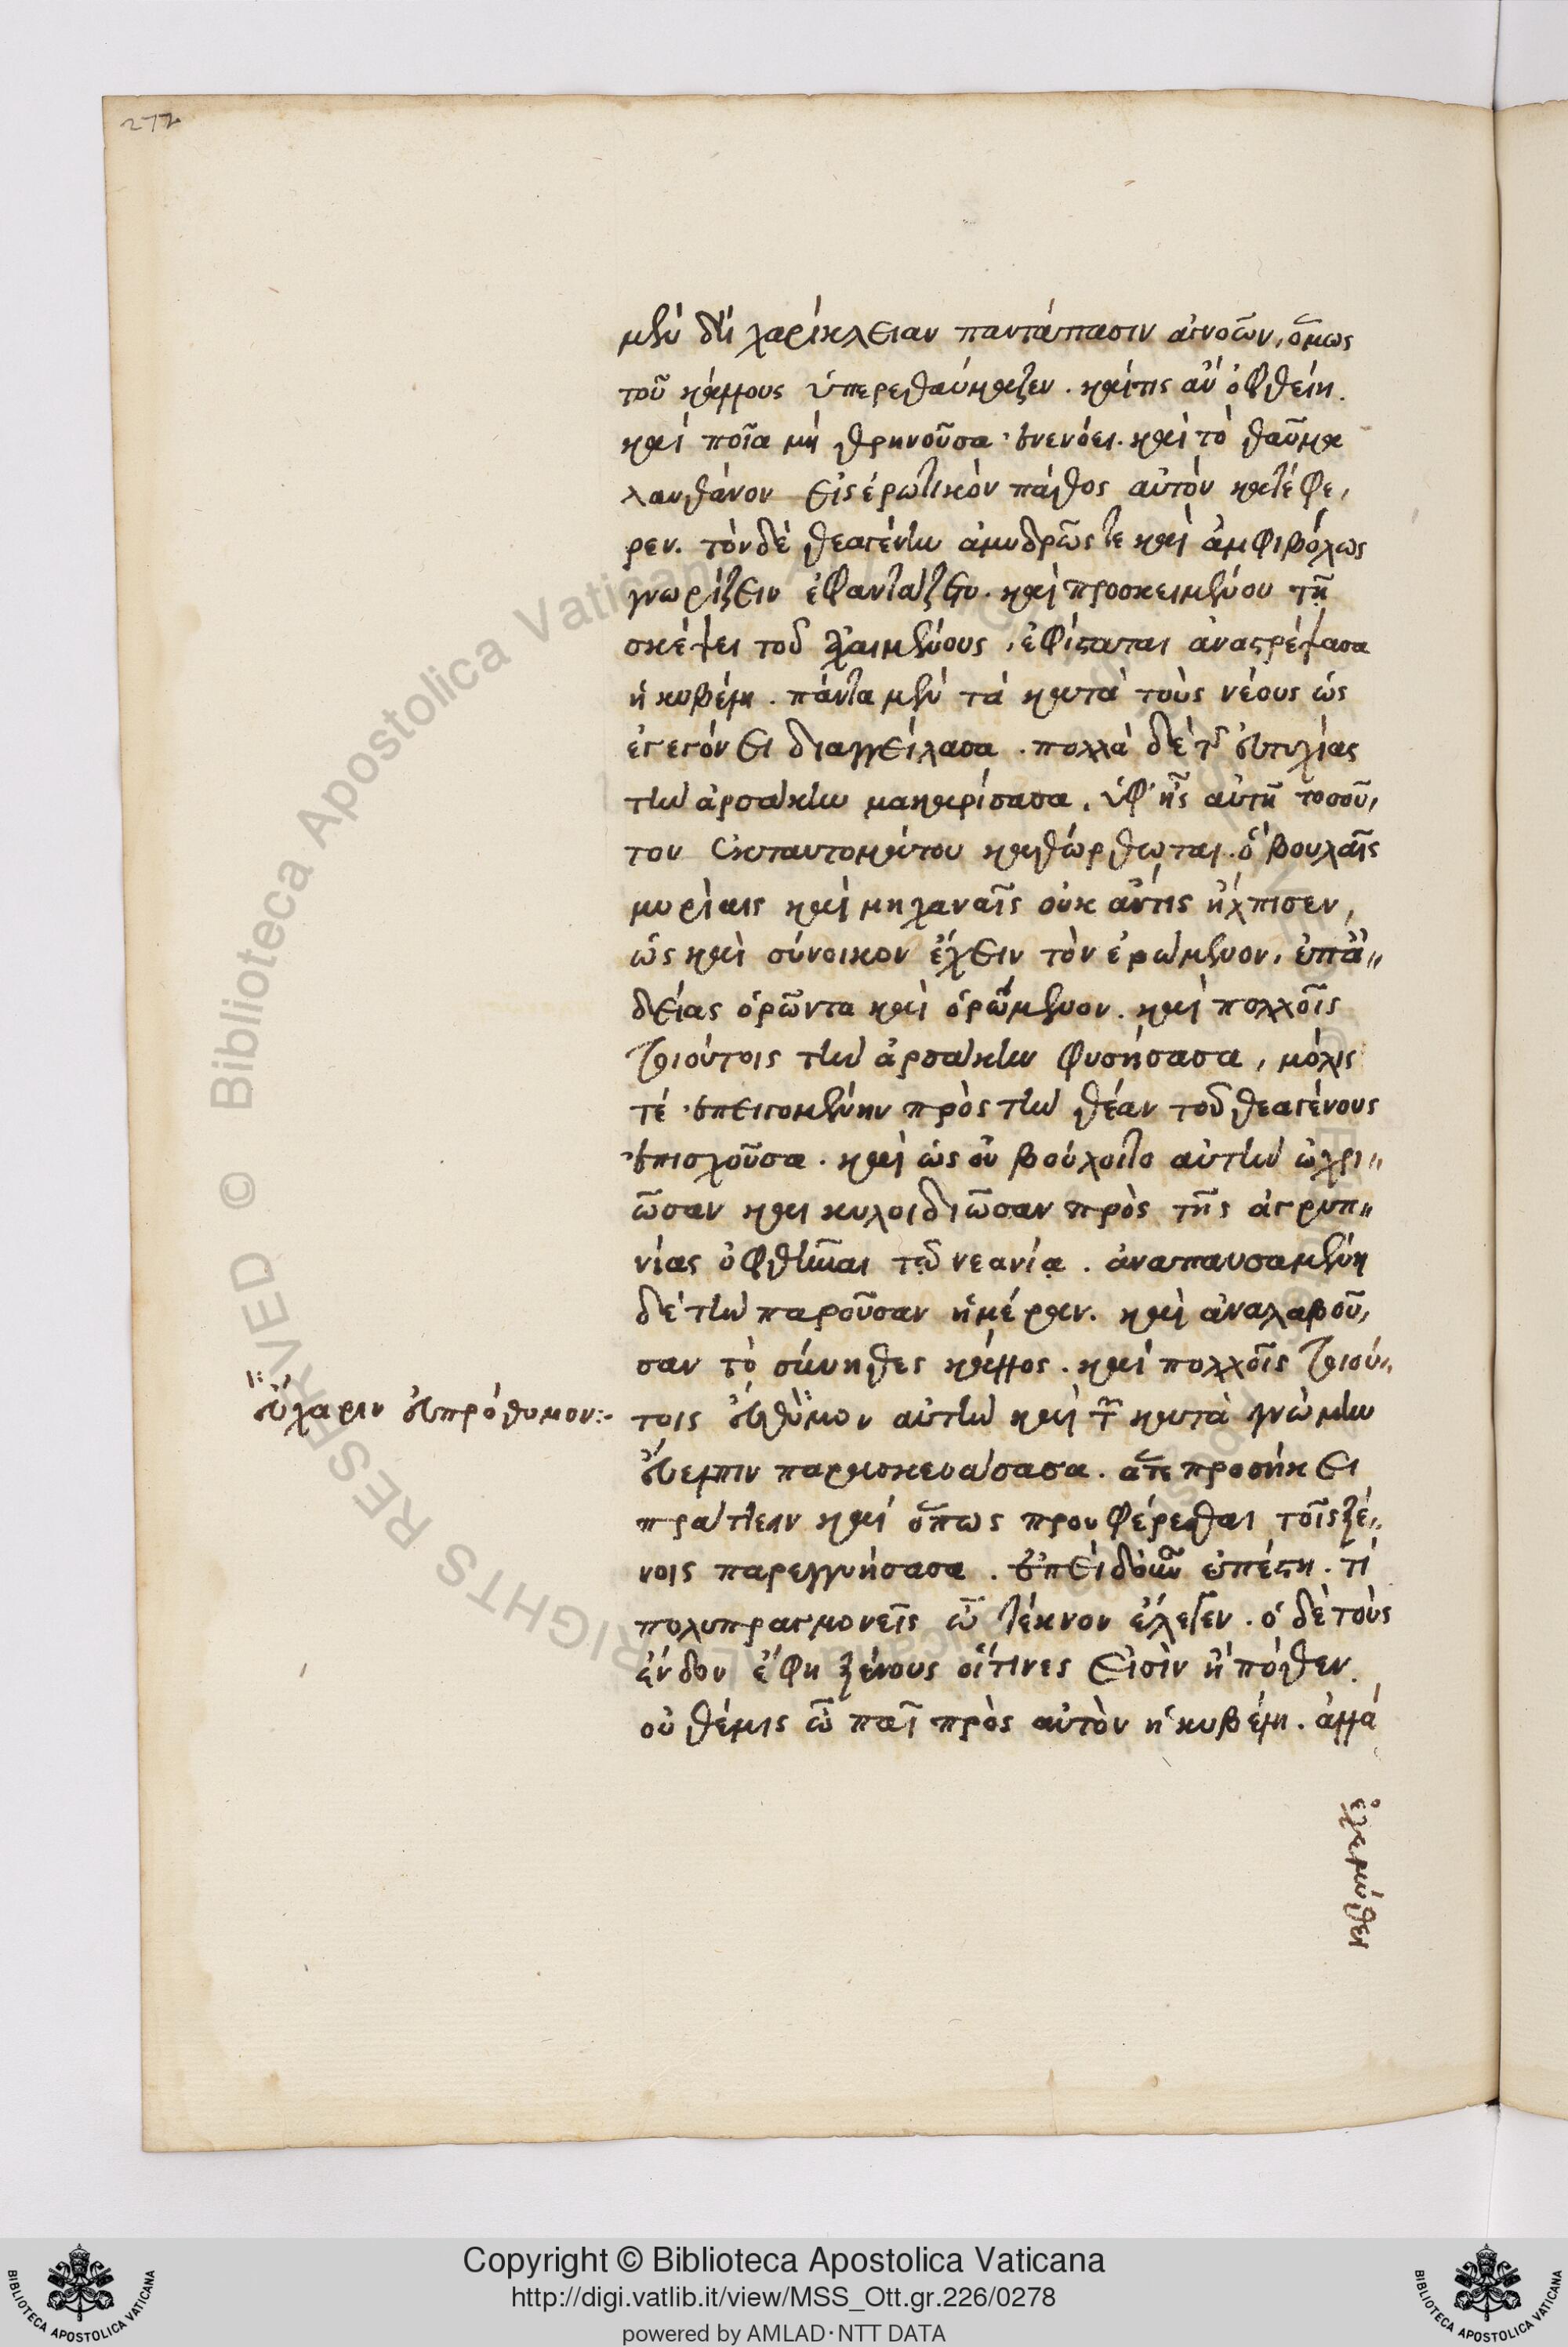 272
μὲν δὴ χαρίκλειαν παντάπασιν ἀγνοῶν, ὅμως
τοῦ κάλλους ὑπερεθαύμαζεν. καί τις ἂν ὀφθείη
καὶ ποῖα μὴ θρηνοῦσα ἐνενόει. καὶ τὸ θαῦμα
λανθάνον εἰς ἐρωτικὸν πάθος αὐτὸν κατέφε,
ρεν. τὸν δὲ θεαγένην ἀμυδρῶς τε καὶ ἀμφιβόλως
γνωρίζειν ἐφαντάζετο. καὶ προσκειμένου τῇ
σκέψει τοῦ ἀχαιμένους, ἐφίσταται ἀναστρέψασα
ἡ κυβέλη. πάντα μὲν τὰ κατὰ τοὺς νέους ὡς
ἐγεγόνει διαγγείλασα. πολλὰ δὲ τῆς εὐτυχίας
τὴν ἀρσάκην μακαρίσασα, ὑφ' ἧς αὐτῇ τοσοῦ,
τον ἐκ ταυτομάτου καθώρθωται. ὃ βουλαῖς
μυρίαις καὶ μηχαναῖς οὐκ ἄν τις ἤλπισεν,
ὡς καὶ σύνοικον ἔχειν τὸν ἐρώμενον, ἐπ' ἀ"
δείας ὁρῶντα καὶ ὁρώμενον. καὶ πολλοῖς
τοιούτοις τὴν ἀρσάκην φυσήσασα, μόλις
τέ ἐπειγομένην πρὸς τὴν θέαν τοῦ θεαγένους
ἐπισχοῦσα. καὶ ὡς οὐ βούλοιτο αὐτὴν ὠχρι"
ῶσαν καὶ κυλοιδιῶσαν πρὸς τῆς ἀγρυπ"
νίας ὀφθῆναι τῷ νεανίᾳ. ἀναπαυσαμένη
δὲ τὴν παροῦσαν ἡμέραν. καὶ ἀναλαβοῦ,
σαν τὸ σύνηθες κάλλος. καὶ πολλοῖς τοιού"
εὔχαριν εὐπρόθυμον:· τοις εὔθυμον αὐτὴν καὶ τὰ κατὰ γνώμην
εὔελπιν παρασκευάσασα. ἅτε προσήκει
πράττειν καὶ ὅπως προσφέρεσθαι τοῖς ξέ"
νοις παρεγγυήσασα. ἐπέστη. τί
πολυπραγμονεῖς ὦ τέκνον ἔλεγεν. ὁ δὲ τοὺς
ἔνδον ἔφη ξένους οἵτινες εἰσὶν ἢ πόθεν.
οὐ θέμις ὦ παῖ πρὸς αὐτὸν ἡ κυβέλη. ἀλλά
Copyright © Biblioteca Apostolica Vaticana
http://digi.vatlib.it/view/MSS_Ott.gr.226/0278
powered by AMLAD·NTT DATA